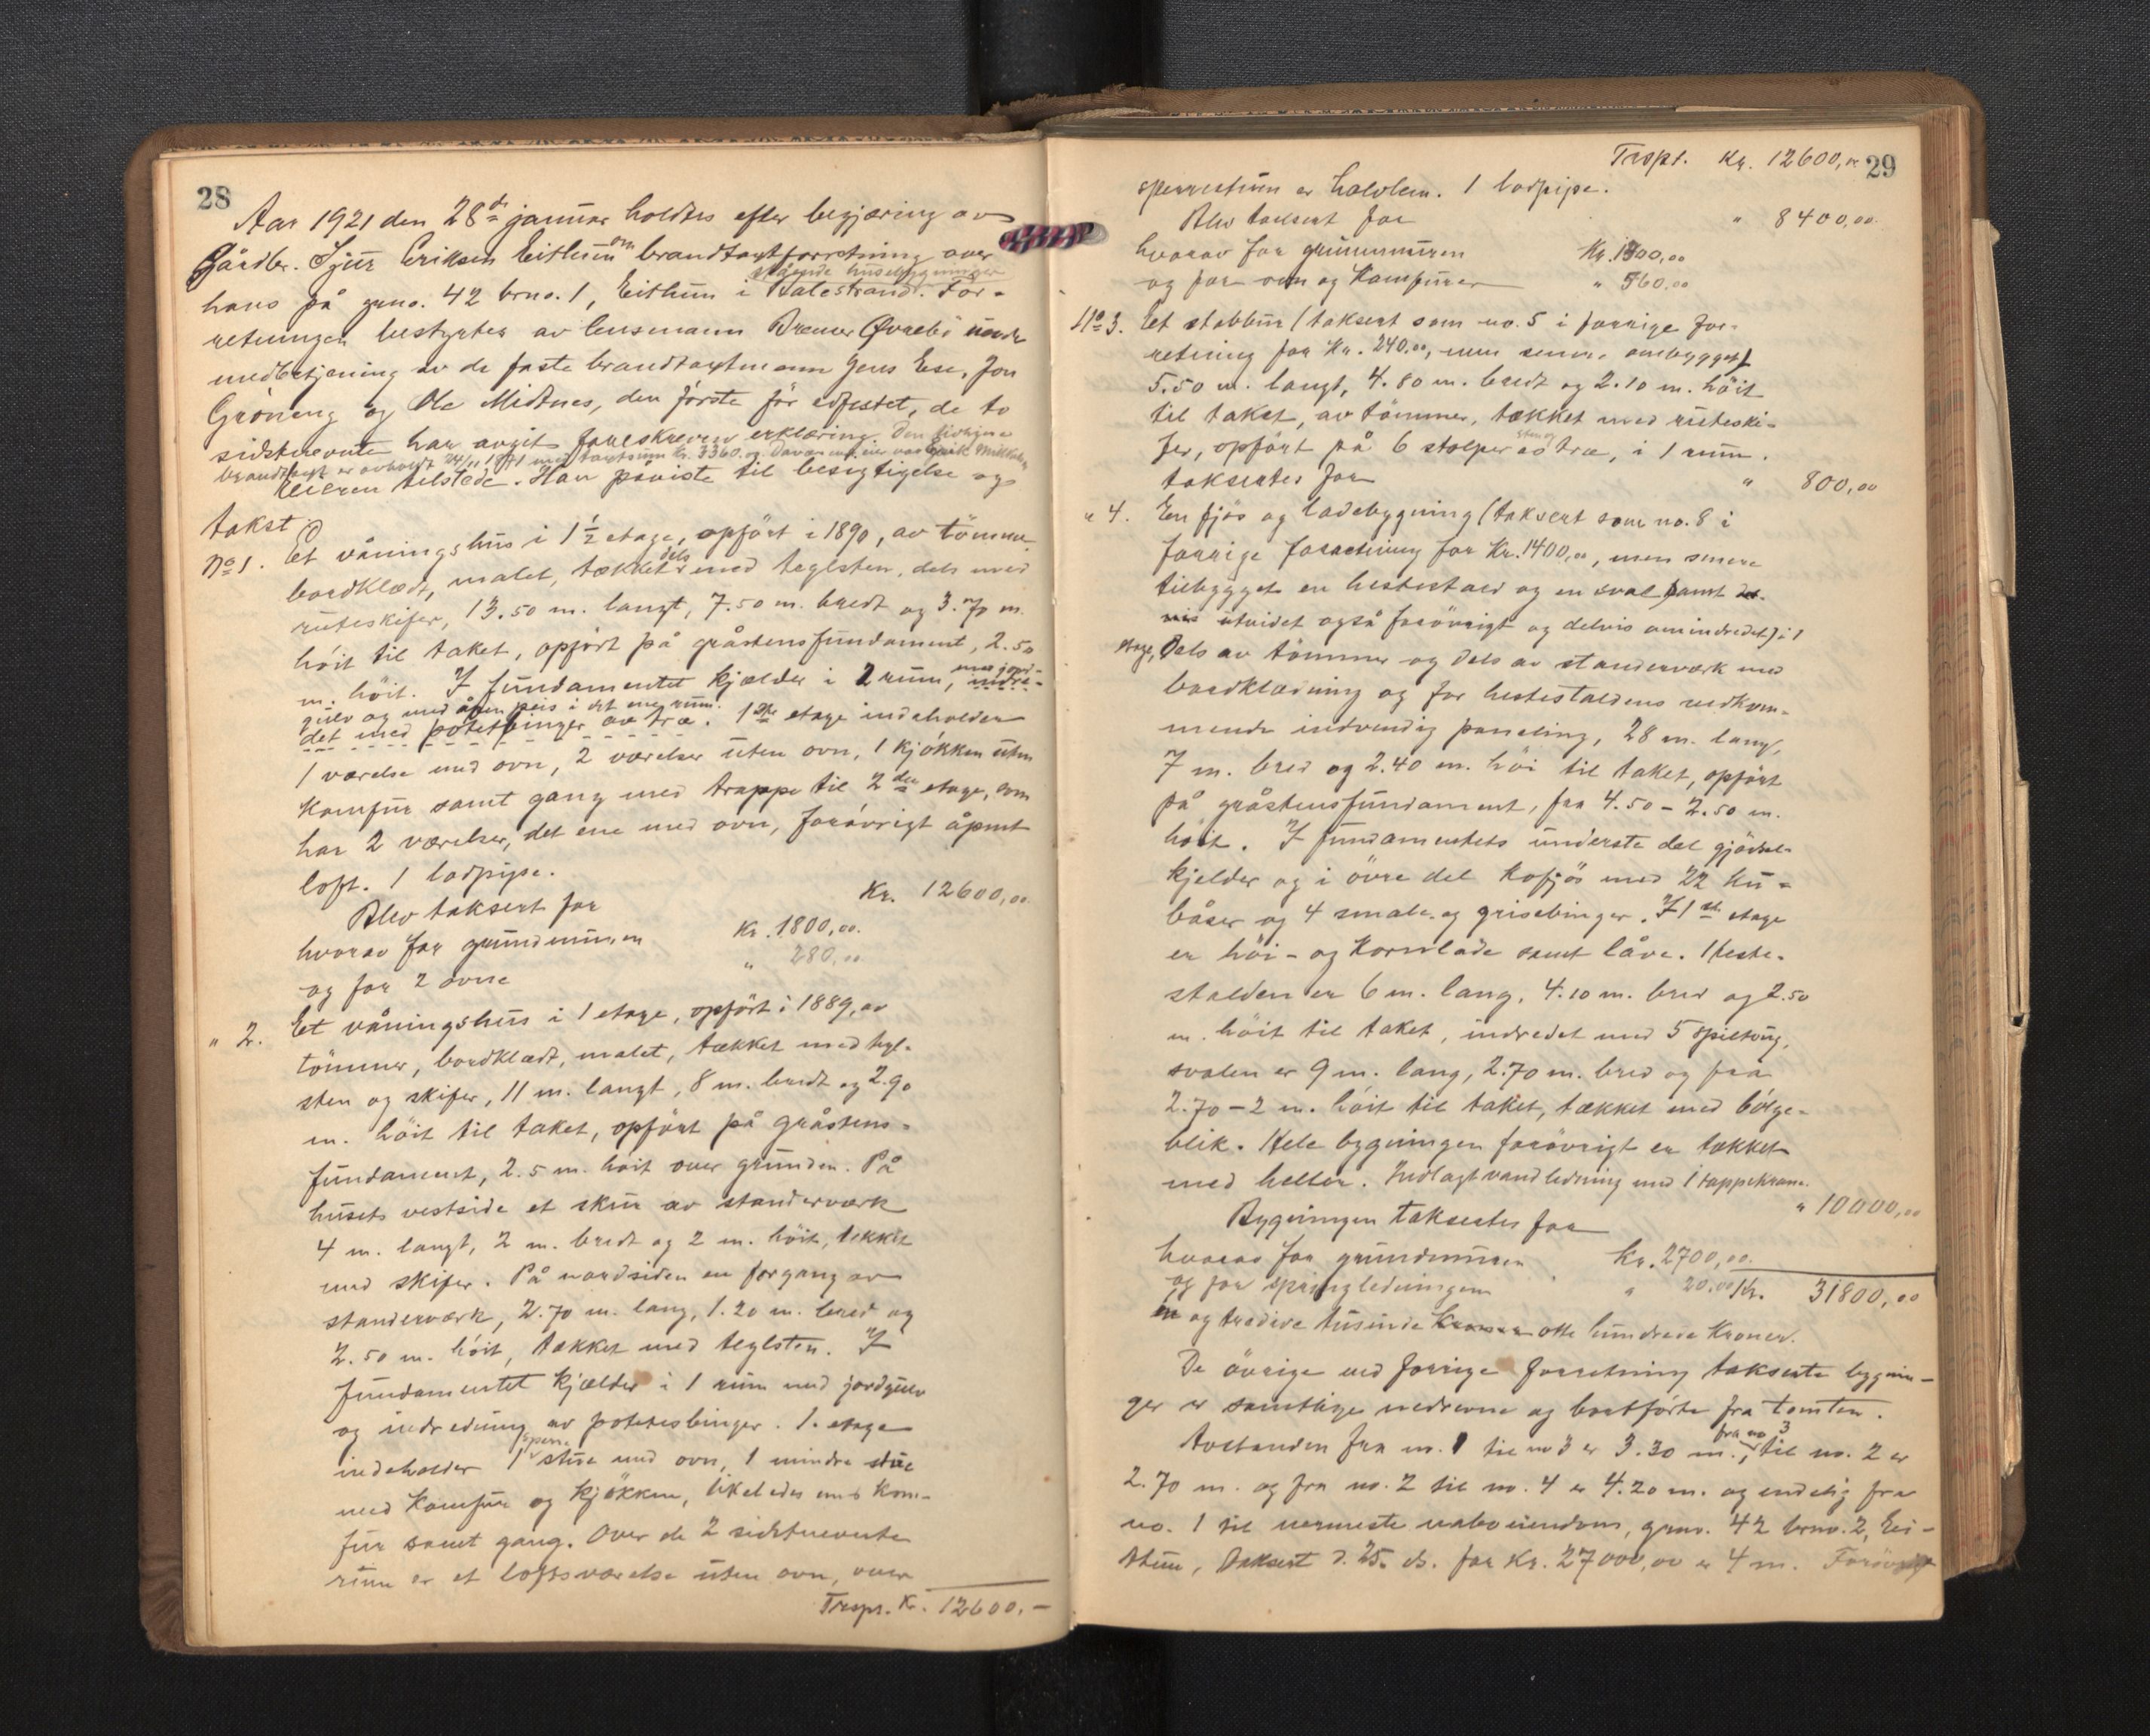 28
Aar 1921 den 28de januar holdtes efter begjæring av
Gårdbr. Sjur Eriksen Eithun om brandtaxtforretning over
stående husebygninger
hans på gno. 42 brno. 1, Eithun i Balestrand. For-
retningen bestyrtes av lensmann Bremer Øvrebö under
medbetjening av de faste brandtaxtmenn Jens Ese, Jon
Gröneng og Ole Midtnes, den förste för edfestet, de to
sidstnevnte har avgit foreskreven erklæring. Den tidligere
brandtaxt er avholdt 24/11 1891 med taxtsum Kr. 3360.00. Daværende eier var
Eieren tilstede. Han påviste til besigtigelse og
takst:
No 1. Et våningshus i 1 1/2 etage, opfört i 1890, av tömmer,
bordklædt, malet, tækket dels med teglsten, dels med
ruteskifer, 13.50 m. langt, 7.50 m. bredt og 3.70 m.
höit til taket, opfört på gråstensfundament, 2.50
m. höit. I fundamentet kjælder i 2 rum, med jord-
gulv og med åpen peis i det ene rum.
det med potetbinger av træ. 1ste etage indeholder
1 værelse med ovn, 2 værelser uten ovn, 1 kjökken uten
Komfur samt gang med trappe til 2den etage, som
har 2 værelser, det ene med ovn, forövrigt åpent
loft. 1 lodpipe.
Blev taksert for Kr. 12600,00
hvorav for grundmuren Kr. 1800,00.
og for 2 ovne " 280,00
" 2. Et våningshus i 1 etage, opfört i 1889, av
tömmer, bordklædt, malet, tækket med tegl-
sten og skifer, 11 m. langt, 8 m. bredt og 2.90
m. höit til taket, opfört på gråstens-
fundament, 2.5 m. höit over grunden. På
husets vestside et skur av standerværk
4 m. langt, 2 m. bredt og 2 m. höit, tekket
med skifer. På nordsiden en forgang av
standerværk, 2.70 m. lang, 1.20 m. bred og
2.50 m. höit, tækket med teglsten. I
fundamentet kjælder i 1 rum med jordgulv
og indredning av potetesbinger. 1. etage
indeholder 1 sperrestue med ovn, 1 mindre stue
med Komfur og kjökken, likeledes med kom-
fur samt gang. Over de 2 sidstnevnte
rum er et loftsværelse uten ovn, over
Trspt. Kr. 12600.-
29
Trspt. Kr. 12600,00
sperrestuen er halvlem. 1 lodpipe.
Blev taksert for " 8400,00.
hvorav for grunnmuren Kr. 1300,00
og for ovn og Komfurer " 560.00
No 3. Et stabbur (taksert som no. 5 i forrige for-
retning for Kr. 240.00, men senere ombygget)
5.50 m. langt, 4.80 m. bredt og 2.10 m. höit
til taket, av tömmer, tækket med ruteski-
fer, opfört på 6 stolper av sten og træ, i 1 rum.
taksertes for " 800,00
" 4. En fjös og ladebygning (taksert som no. 8 i
forrige forretning for Kr. 1400,00, men senere
tilbygget en hestestald og en sval samt del-
vis utvidet også forövrigt og delvis omindredet) i 1
etage, Dels av tömmer og dels av standerværk med
bordklædning og for hestestaldens vedkom-
mende indvendig paneling, 28 m. lang,
7 m. bred og 2.40 m. höi til taket, opfört
på gråstensfundament, fra 4.50 - 2.50 m.
höit. I fundamentets underste del gjödsel-
kjelder og i övre del Kofjös med 22 ku-
båser og 4 småle- og grisebinger. I 1ste etage
er höi- og Kornlade samt låve. Heste-
stalden er 6 m. lang, 4.10 m. bred og 2.50
m. höit til taket, indredet med 5 spiltoug,
svalen er 9 m. lang, 2.70 m. bred og fra
2.70 - 2 m. höit til taket, tækket med bölge-
blik. Hele bygningen forövrigt er tækket
med heller. Indlagt vandledning med 1 tappekrane.
Bygningen taksertes for " 10000,00
hvorav for grundmuren Kr. 2700,00.
og for springledningen " 20.00 Kr. 31800,00
en og tredive tusinde Kroner otte hundrede Kroner.
De övrige ved forrige forretning takserte bygnin-
ger er samtlige nedrevne og bortförte fra tomten.
Avstanden fra no. 1 til no 3 er 3.30 m., fra no 3 til no. 2 er
2.70 m. og fra no. 2 til no. 4 er 4.20 m. og endelig fra
no. 1 til nærmeste naboeiendom, gno. 42 brno. 2, Ei-
thun, taksert d. 25. ds. for Kr. 27000,00 er 4 m. Forövrigt